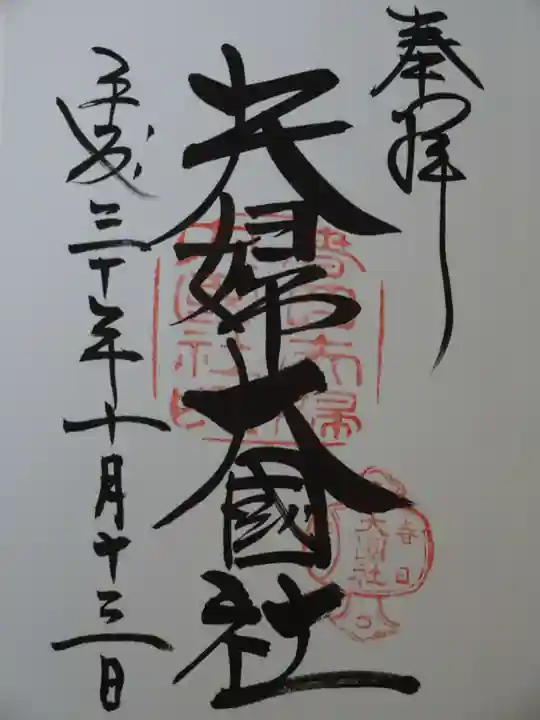 奉拝
夫婦大國社
平成三十年十月十三日
春日
大國社